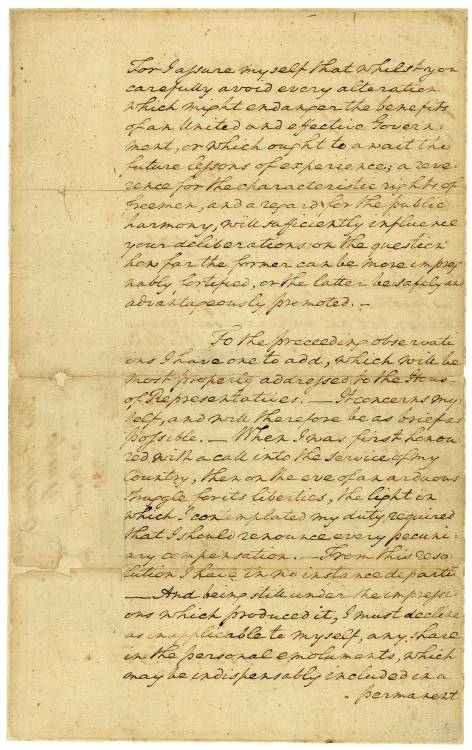 For I assure myself that whilst you
carefully avoid every alteration
which might endanger the benefits
of an United and effective Govern-
ment, or which ought to await the
future lessons of experience; a reve-
rence for the characteristic rights of
freemen, and a regard for the public
harmony, will sufficiently influence
your deliberations on the question
how far the former can be more impreg-
nably fortified, or the latter be safely and
advantageously promoted. –
To the preceeding observati-
ons I have one to add, which will be
most properly addressed to the House
of Representatives. – It concerns my-
self, and will therefore be as brief as
possible. – When I was first honou-
red with a call into the service of my
Country, then on the eve of an arduous
struggle for its liberties, the light in
which I contemplated my duty required
that I should renounce every pecuni-
ary compensation. – From this reso-
lution I have in no instance departed
– And being still under the impressi-
ons which produced it, I must decline
as inapplicable to myself, any share
in the personal emoluments, which
may be indispensably included in a
permanent